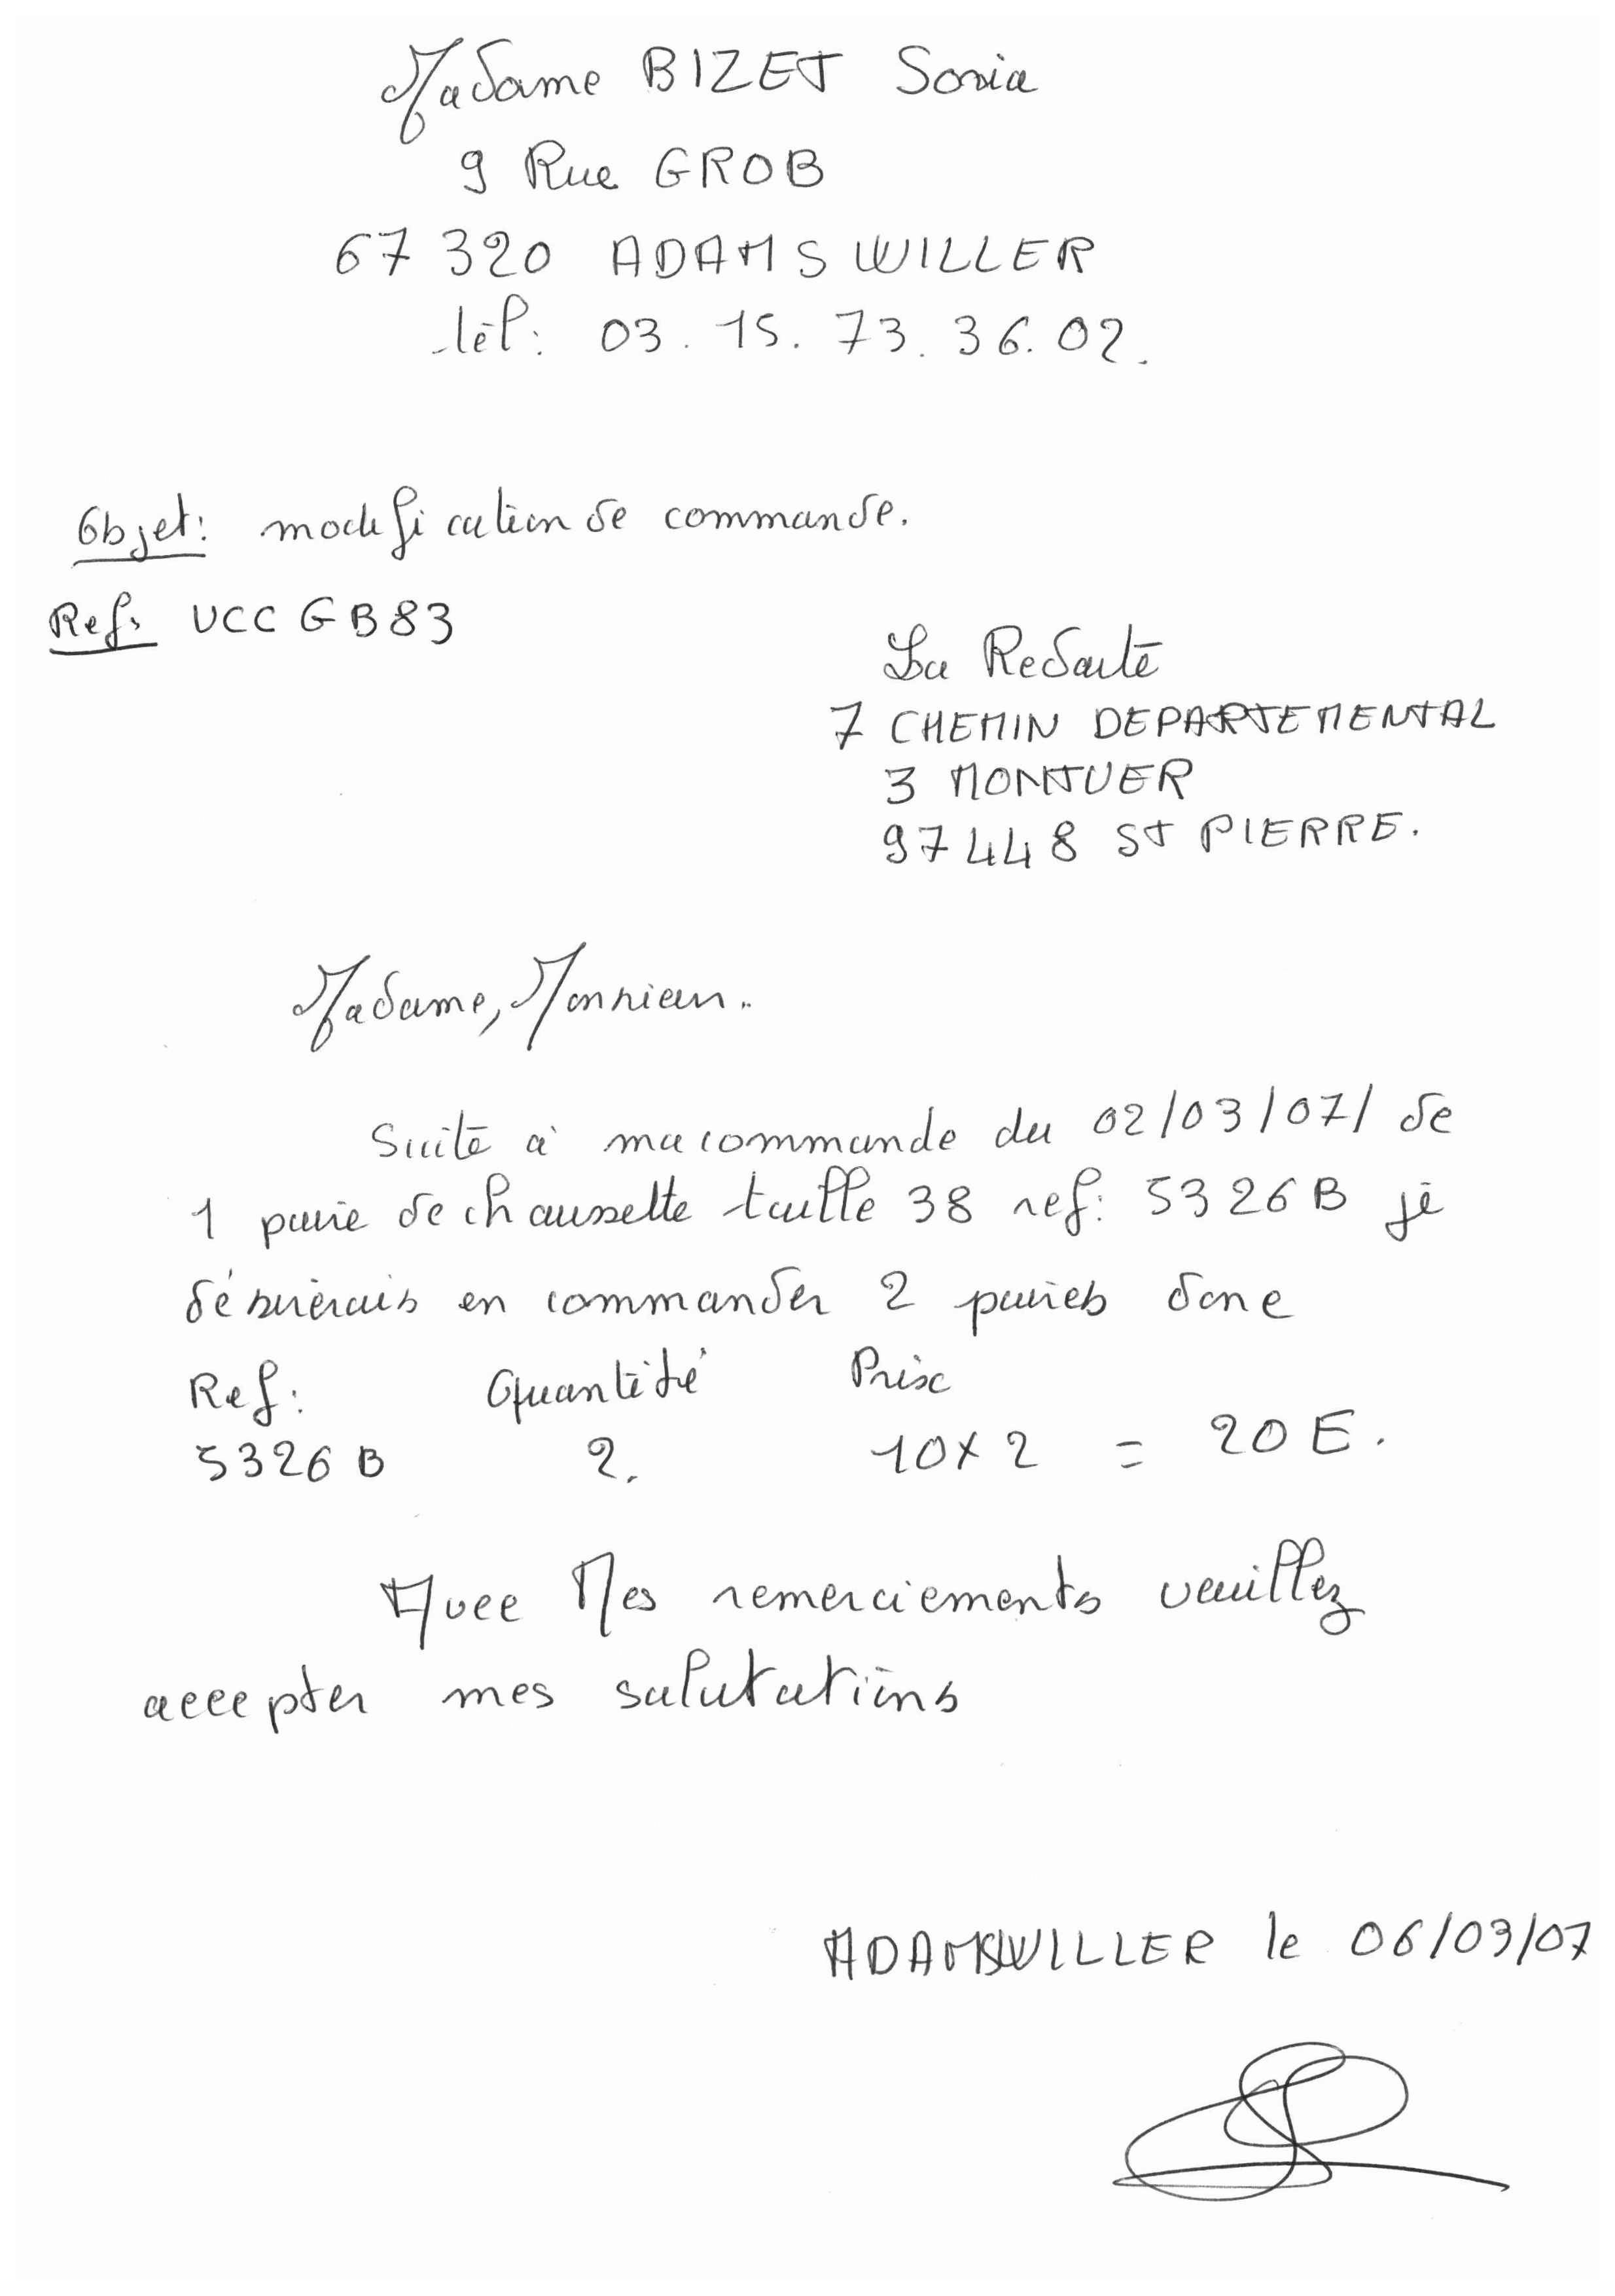 Madame BIZET Sonia
9 Rue GROB
67 320 ADAMSWILLER
tél: 03.15.73.36.02.
Objet: modification de commande.
Ref: UCCGB83
La Redoute
7 CHEMIN DEPARTEMENTAL
3 MONTVER
97448 ST PIERRE.
Madame, Monsieur.
Suite à ma commande du 02/03/07/ de
1 paire de chaussette taille 38 ref: 5326B je
désirerais en commander 2 paires donc
Ref: Quantité Prix
5326B 2. 10x2 = 20E.
Avec Mes remerciements veuillez
accepter mes salutations
ADAMSWILLER le 06/03/07